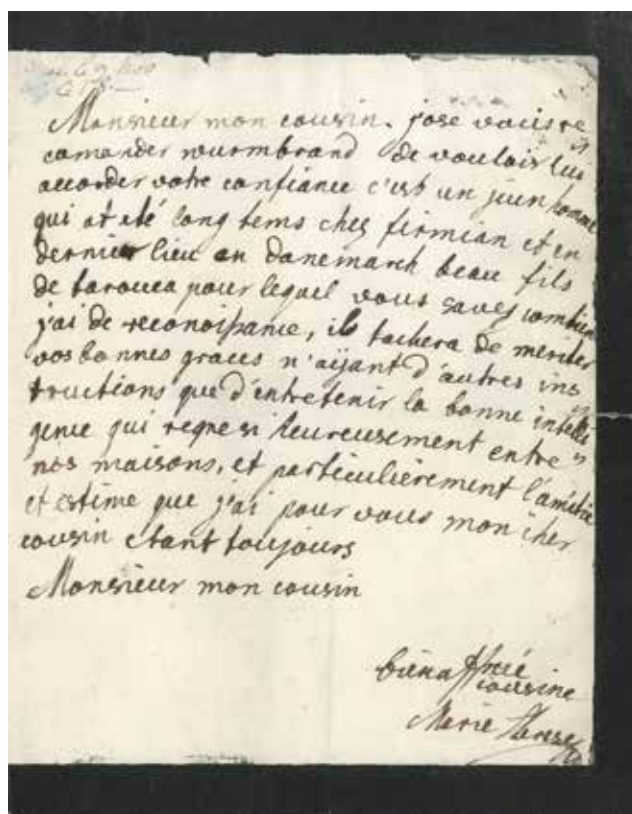 Monsieur mon cousin. j'ose vous re=
comander wurmbrand de vouloir lui
accorder votre confiance c'est un jeun homme
qui at eté long tems chez firmian et en
dernier lieu en danemarck beau fils
de tarouca pour lequel vous savez combien
j'ai de reconoissance, il tachera de meriter
vos bonnes graces n'aijant d'autres ins
tructions que d'entretenir la bonne intelli=
gence qui regne si heureusement entre
nos maisons, et particulièrement l'amitié
et estime que j'ai pour vous mon cher
cousin etant toujours
Monsieur mon cousin
cousine
Marie Therese